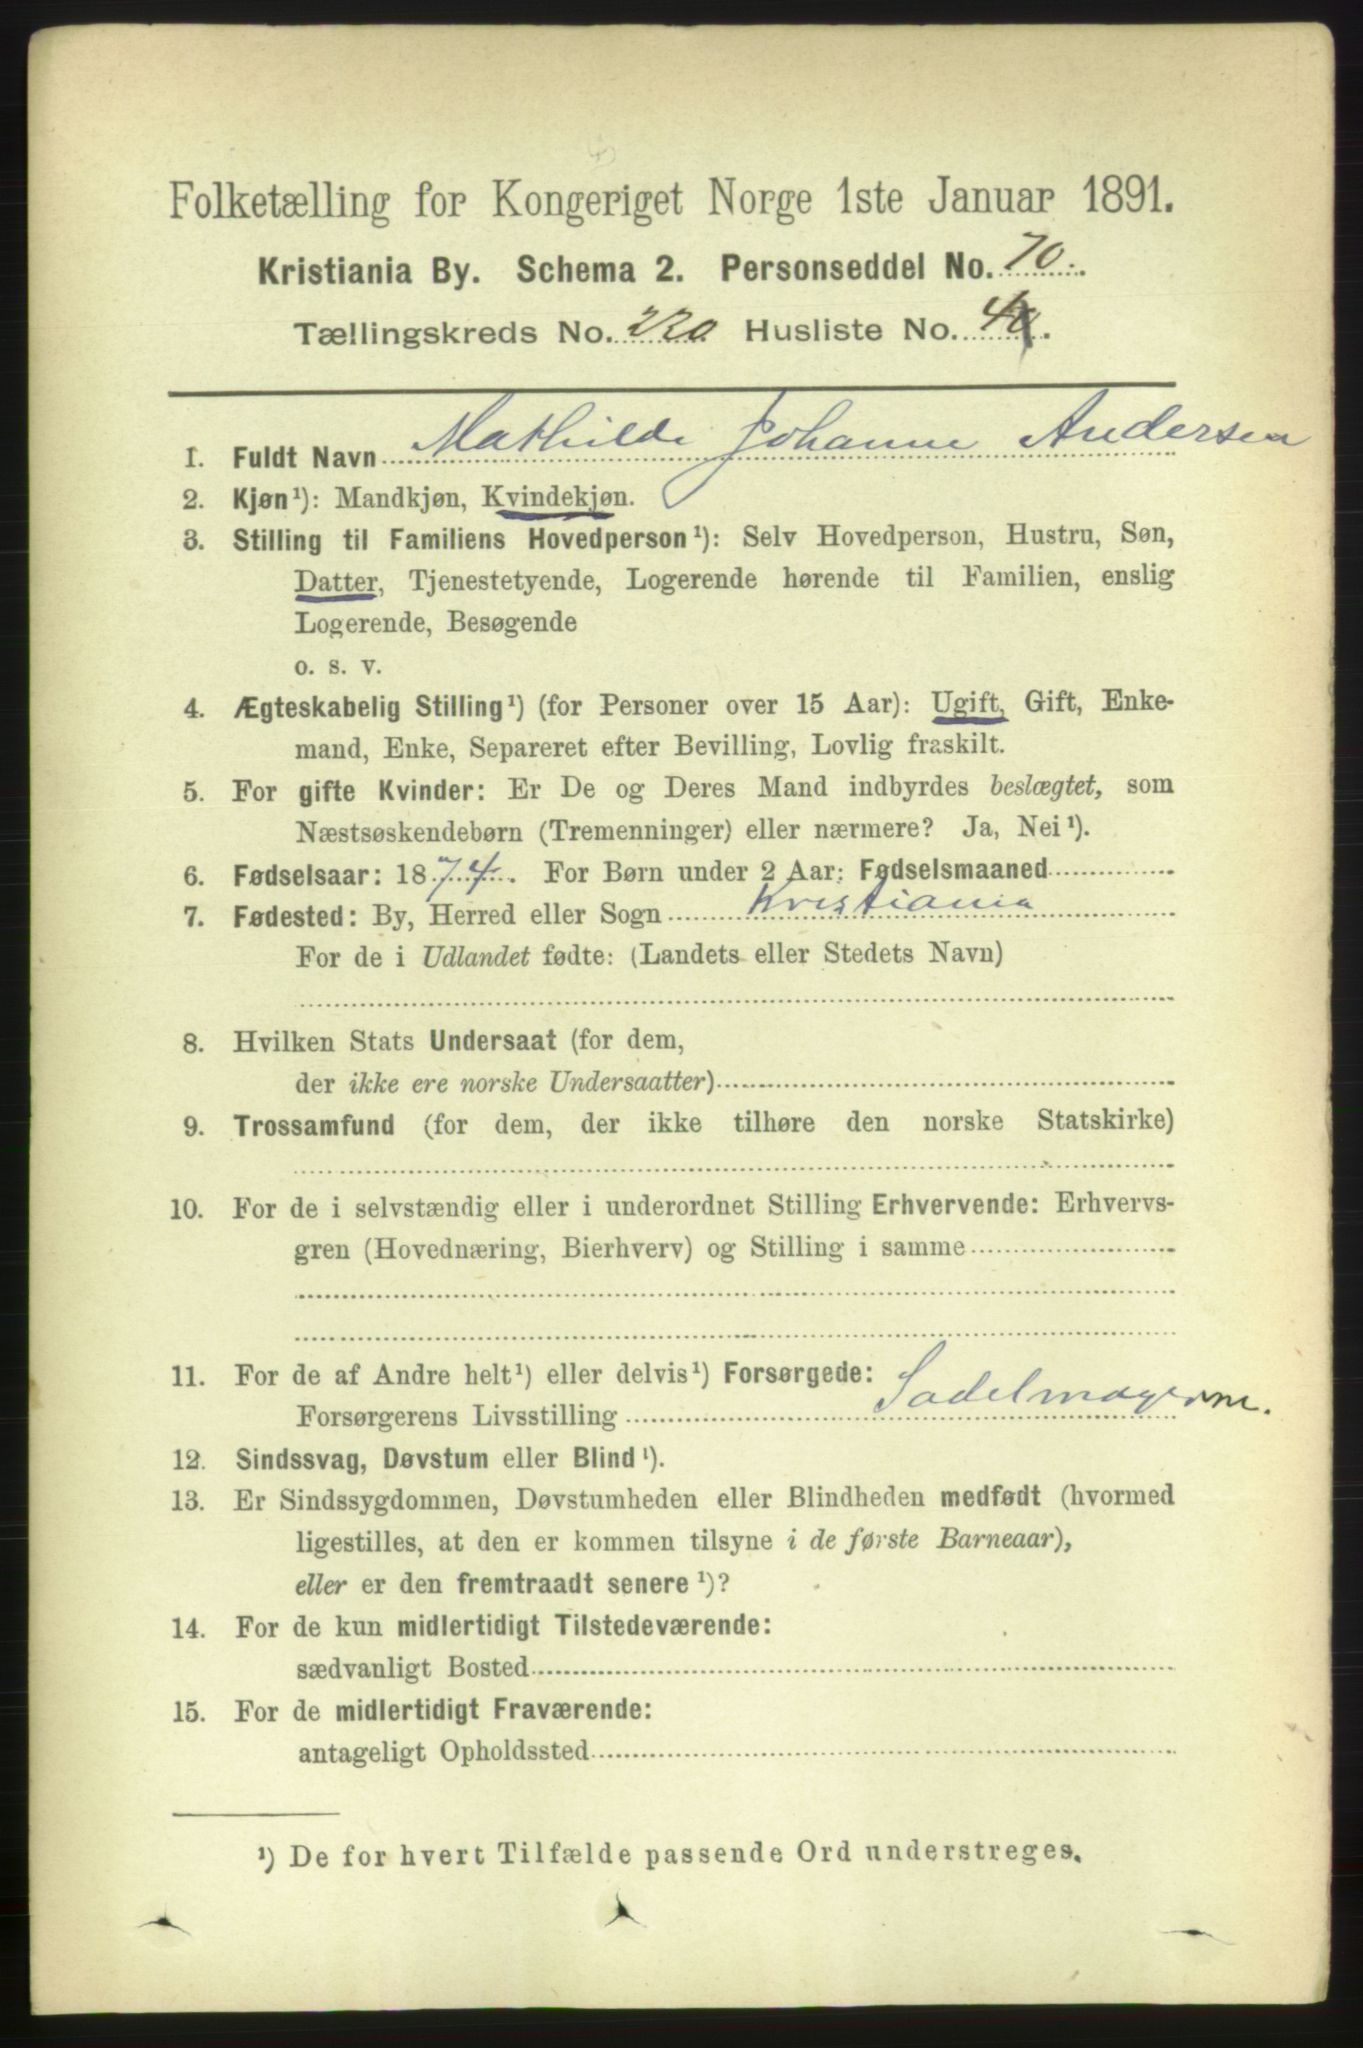 Folketælling for Kongeriget Norge 1ste Januar 1891.
Kristiania By. Schema 2. Personseddel No. 70.
Tællingskreds No. 220 Husliste No. 4.
1. Fuldt Navn Mathilde Johanne Andersen
2. Kjøn¹): Mandkjøn, Kvindekjøn.
3. Stilling til Familiens Hovedperson¹): Selv Hovedperson, Hustru, Søn,
Datter, Tjenestetyende, Logerende hørende til Familien, enslig
Logerende, Besøgende
o. s. v.
4. Ægteskabelig Stilling¹) (for Personer over 15 Aar): Ugift, Gift, Enke-
mand, Enke, Separeret efter Bevilling, Lovlig fraskilt.
5. For gifte Kvinder: Er De og Deres Mand indbyrdes beslægtet, som
Næstsøskendebørn (Tremenninger) eller nærmere? Ja, Nei¹).
6. Fødselsaar: 1874. For Børn under 2 Aar: Fødselsmaaned
7. Fødested: By, Herred eller Sogn Kristiania
For de i Udlandet fødte: (Landets eller Stedets Navn)
8. Hvilken Stats Undersaat (for dem,
der ikke ere norske Undersaatter)
9. Trossamfund (for dem, der ikke tilhøre den norske Statskirke)
10. For de i selvstændig eller i underordnet Stilling Erhvervende: Erhvervs-
gren (Hovednæring, Bierhverv) og Stilling i samme
11. For de af Andre helt¹) eller delvis¹) Forsørgede:
Forsørgerens Livsstilling
12. Sindssvag, Døvstum eller Blind¹).
13. Er Sindssygdommen, Døvstumheden eller Blindheden medfødt (hvormed
ligestilles, at den er kommen tilsyne i de første Barneaar),
eller er den fremtraadt senere¹)?
14. For de kun midlertidigt Tilstedeværende:
sædvanligt Bosted
15. For de midlertidigt Fraværende:
antageligt Opholdssted
¹) De for hvert Tilfælde passende Ord understreges.